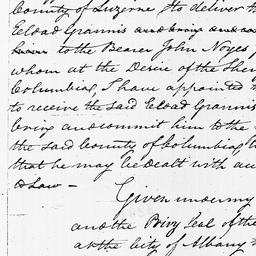 County of Luzerne to deliver th
Elead Grannis and bring and co
him to the Bearer John Noyes
whom at the Desire of the Sher
Columbia, I have appointed m
to receive the said Elead Grannis
bring and commit him to the
the said County of Columbia, t
that he may be dealt with acc
to Law -
Given under my
and the Privy Seal of the
at the City of Albany